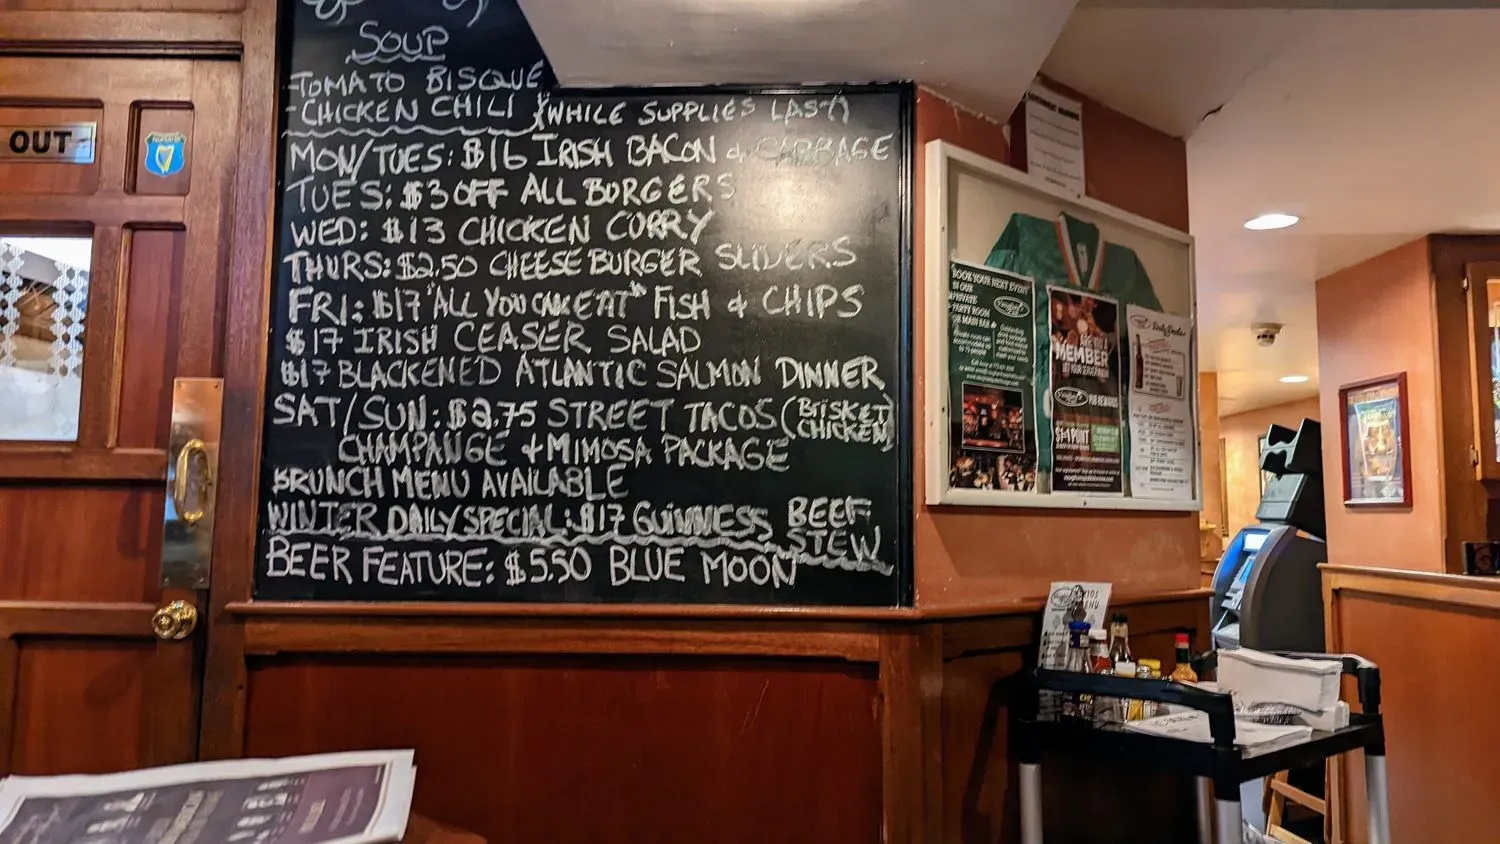 SOUP
-TOMATO BISQUE
-CHICKEN CHILI (WHILE SUPPLIES LAST)
MON/TUES: $16 IRISH BACON & CABBAGE
TUES: $3 OFF ALL BURGERS
WED: $13 CHICKEN CURRY
THURS: $2.50 CHEESEBURGER SLIDERS
FRI: $17 "ALL YOU CAN EAT" FISH & CHIPS
$17 IRISH CEASER SALAD
$17 BLACKENED ATLANTIC SALMON DINNER
SAT/SUN: $2.75 STREET TACOS (BRISKET,
CHICKEN)
CHAMPANGE & MIMOSA PACKAGE
BRUNCH MENU AVAILABLE
WINTER DAILY SPECIAL: $17 GUINNESS BEEF
STEW
BEER FEATURE: $5.50 BLUE MOON
OUT
BOOK YOUR NEXT EVENT
IN OUR
PRIVATE
PARTY ROOM
OR MAIN BAR
ARE YOU A
MEMBER
PUB REWARDS
$1=1 POINT
Daily Deals
MENU